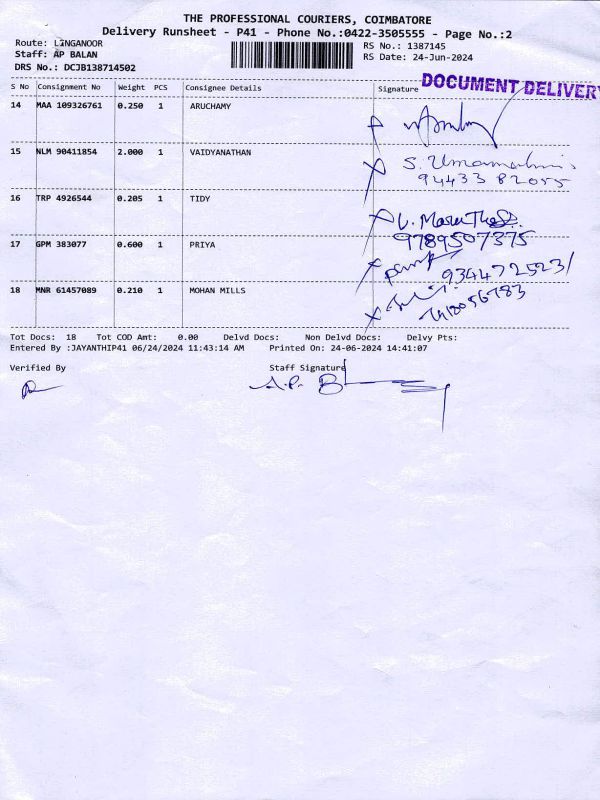 THE PROFESSIONAL COURIERS, COIMBATORE
Delivery Runsheet - P41 - Phone No.:0422-3505555 - Page No.:2
Route: LINGANOOR
Staff: AP BALAN
DRS No.: DCJB138714502
RS No.: 1387145
RS Date: 24-Jun-2024
S No Consignment No Weight PCS Consignee Details Signature
DOCUMENT DELIVERY
14 MAA 109326761 0.250 1 ARUCHAMY
15 NLM 90411854 2.000 1 VAIDYANATHAN
S. Umamaheswari
94433 82055
16 TRP 4926544 0.205 1 TIDY
9789507375
17 GPM 383077 0.600 1 PRIYA
9344725231
18 MNR 61457089 0.210 1 MOHAN MILLS
Tot Docs: 18 Tot COD Amt: 0.00 Delvd Docs: Non Delvd Docs: Delvy Pts:
Entered By :JAYANTHIP41 06/24/2024 11:43:14 AM Printed On: 24-06-2024 14:41:07
Verified By Staff Signature
A.P. B